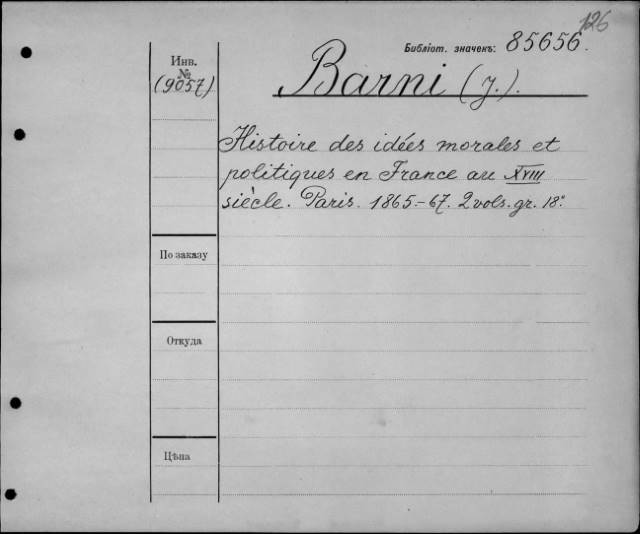 126
Библіот. значекъ: 85656.
Инв.
№
(9057)
Barni (J.).
Histoire des idées morales et
politiques en France au XVIII
siècle. Paris. 1865.-67. 2 vols. gr. 18°.
По заказу
Откуда
Цѣна